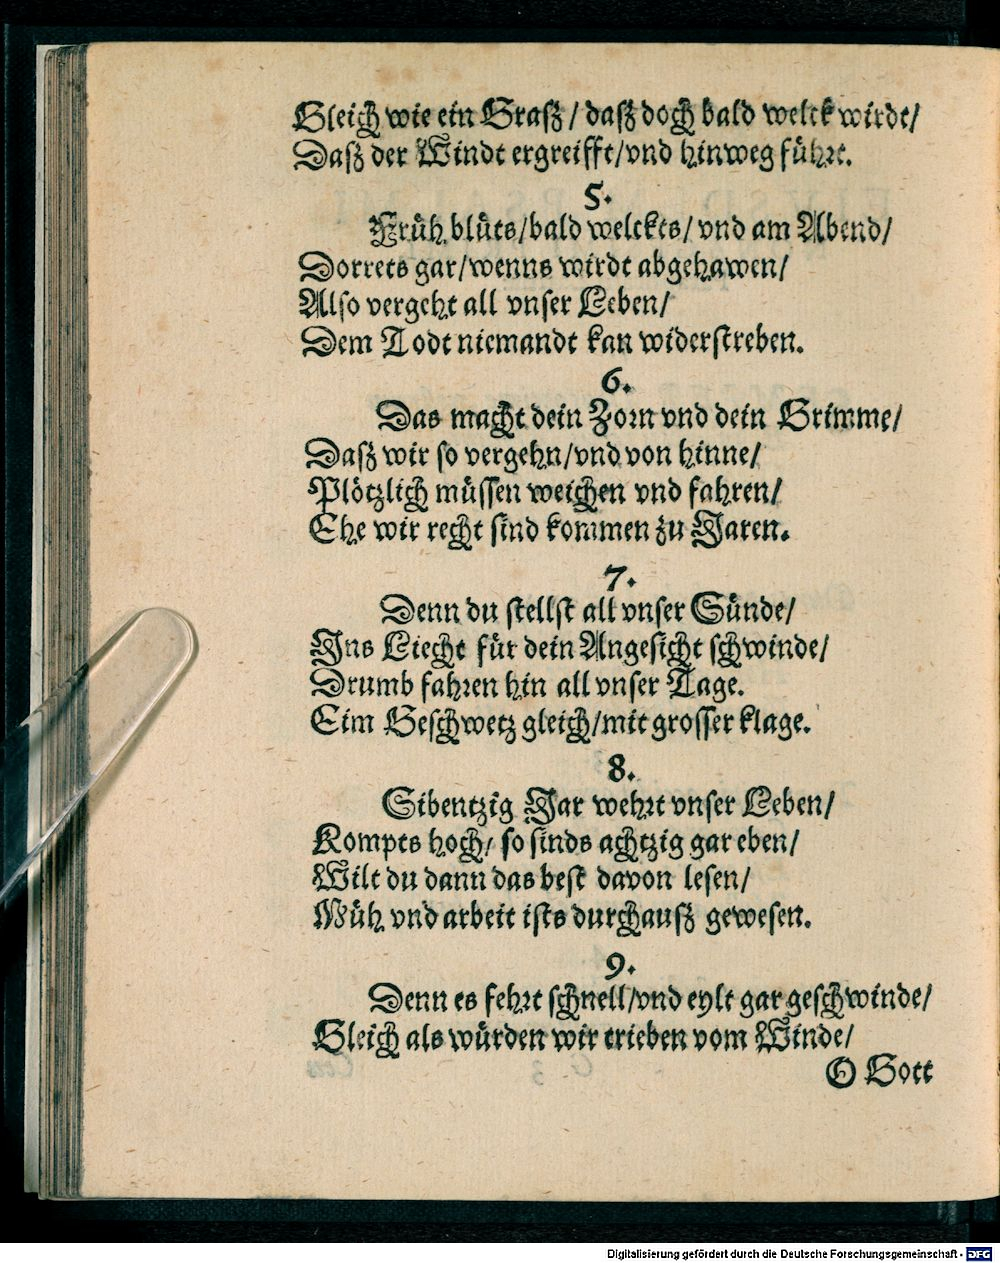 Gleich wie ein Graß / daß doch bald welck wirdt/
Daß der Windt ergreifft/vnd hinweg führt.
5.
Früh blüts/bald welckts/ vnd am Abend/
Dorrets gar/wenns wirdt abgehawen/
Also vergeht all vnser Leben/
Dem Todt niemandt kan widerstreben.
6.
Das macht dein Zorn vnd dein Grimme/
Daß wir so vergehn/vnd von hinne/
Plötzlich müssen weichen vnd fahren/
Ehe wir recht sind kommen zu Jaren.
7.
Denn du stellst all vnser Sünde/
Ins Liecht für dein Angesicht schwinde/
Drumb fahren hin all vnser Tage.
Eim Geschwetz gleich/mit grosser klage.
8.
Sibentzig Jar wehrt vnser Leben/
Kompts hoch/ so sinds achtzig gar eben/
Wilt du dann das best davon lesen/
Müh vnd arbeit ists durchauß gewesen.
9.
Denn es fehrt schnell/vnd eylt gar geschwinde/
Gleich als würden wir trieben vom Winde/
O Gott
Digitalisierung gefördert durch die Deutsche Forschungsgemeinschaft - DFG